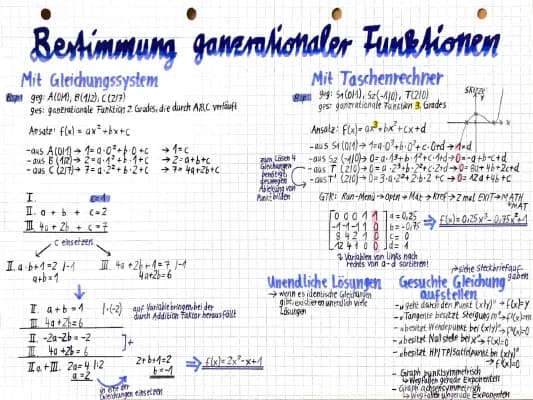 Bestimmung ganzrationaler Funktionen
Mit Gleichungssystem
Bsp.: geg: A(0|1), B(1|2), C(2|7)
ges: ganzrationale Funktion 2. Grades, die durch A,B,C verläuft
Ansatz: f(x) = ax²+bx+c
-aus A(0|1) → 1=a·0²+b·0+c → 1=c
-aus B (1|2) → 2=a·1²+b·1+c → 2=a+b+c
-aus C (2|7) → 7=a·2²+b·2+c → 7=4a+2b+c
zum Lösen 4
Gleichungen
benötigt,
deswegen
Ableitung von
Punkt bilden
I. c=1
II. a + b + c=2
III. 4a + 2b + c =7
c einsetzen
II. a+b+1=2 |-1
a+b=1
III. 4a+2b+1=7 |-1
4a+2b=6
II. a+b=1 |·(-2)
III. 4a+2b=6
auf Variable bringen bei der
durch Addition Faktor herausfällt
II. -2a-2b=-2
III. 4a+2b=6
]+
II.+III. 2a=4 |:2
a=2
in eine der
Gleichungen einsetzen
2+b+1=2
b=-1
⇒ f(x)=2x²-x+1
Mit Taschenrechner
Bsp.: geg: S1(0|1), S2(-1|0), T(2|0)
ges: ganzrationale Funktion 3. Grades
SKIZZE:
Ansatz: f(x)=ax³+bx²+cx+d
-aus S1(0|1) → 1=a·0³+b·0²+c·0+d → 1=d
-aus S2 (-1|0) → 0=-a+b-c+d
-aus T (2|0) → 0=a·2³+b·2²+c·2+d → 0=8a+4b+2c+d
-aus T' (2|0) → 0=3·a·2²+2·b·2+c → 0=12a+4b+c
GTR: Run-Menü → Optn → Mat → Rref → 2 mal EXIT → MATH
→ MAT
[0 0 0 1 1] a=0,25
[-1 1 -1 1 0] b=-0,75
[8 4 2 1 0] c=0
[12 4 1 0 0] d=1
⇒ f(x)=0,25x³-0,75x²+1
Variablen von links nach
rechts von a-d sortieren!
Unendliche Lösungen
→ wenn es identische Gleichungen
gibt, existieren unendlich viele
Lösungen
siehe Steckbriefauf-
gaben
Gesuchte Gleichung
aufstellen
- "geht durch den Punkt (x|y)" → f(x)=y
- "Tangente besitzt Steigung m" → f'(x)=m
- "besitzt Wendepunkt bei (x|y)" → f''(x)=0
- "besitzt Nullstelle bei x" → f(x)=0
- "besitzt HP/TP/Sattelpunkt bei (x|y)"
→ f'(x)=0
- Graph punktsymmetrisch
↳ Wegfallen gerade Exponenten
- Graph achsensymmetrisch
↳ Wegfallen ungerade Exponenten